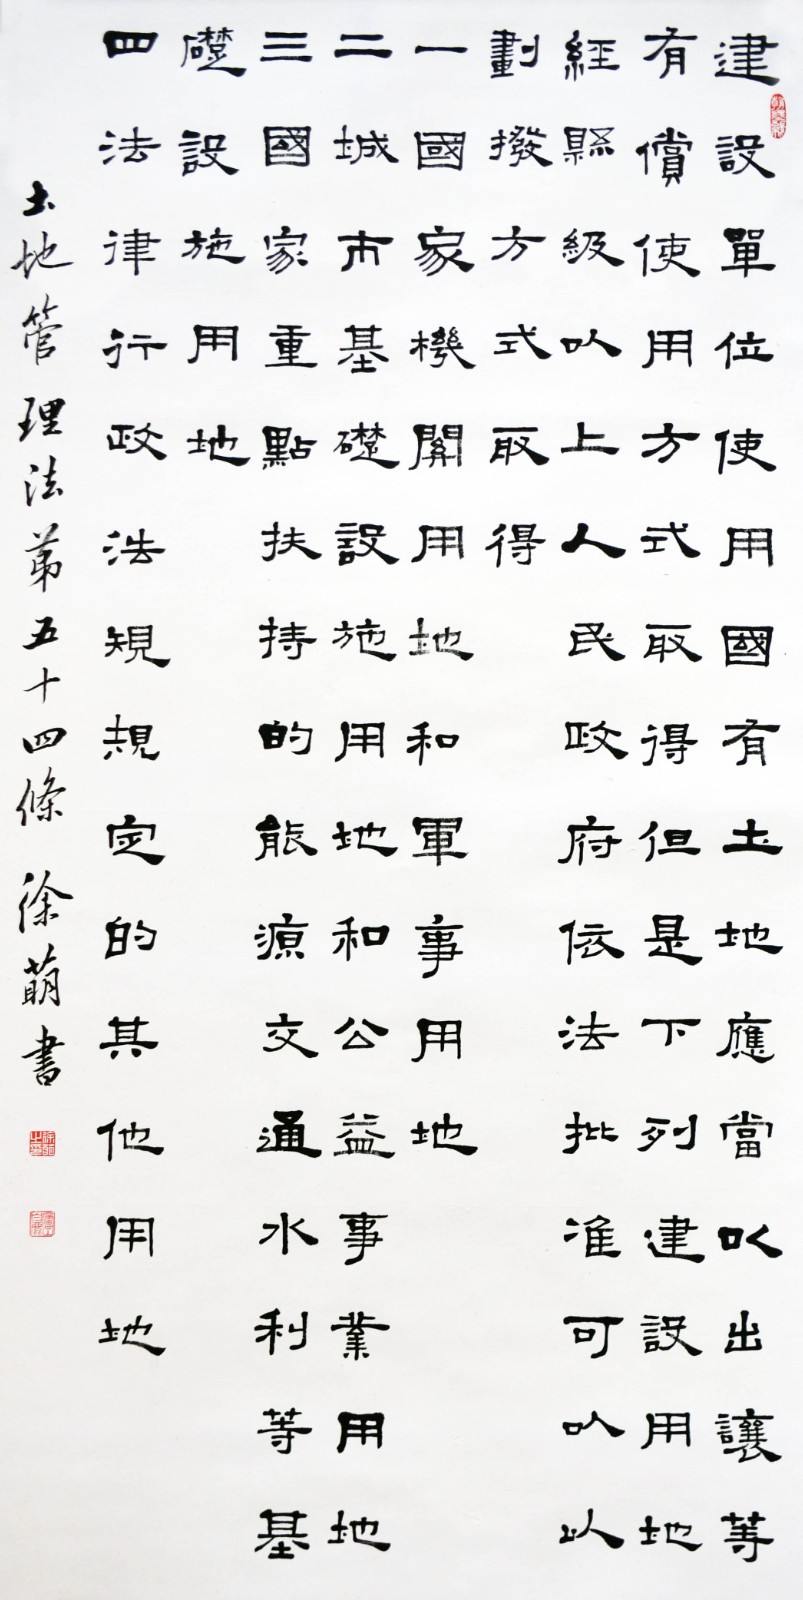 建設單位使用國有土地應當以出讓等
有償使用方式取得但是下列建設用地
經縣級以上人民政府依法批准可以以
劃撥方式取得
一國家機關用地和軍事用地
二城市基礎設施用地和公益事業用地
三國家重點扶持的能源交通水利等基
礎設施用地
四法律行政法規規定的其他用地
土地管理法第五十四條 徐萌書